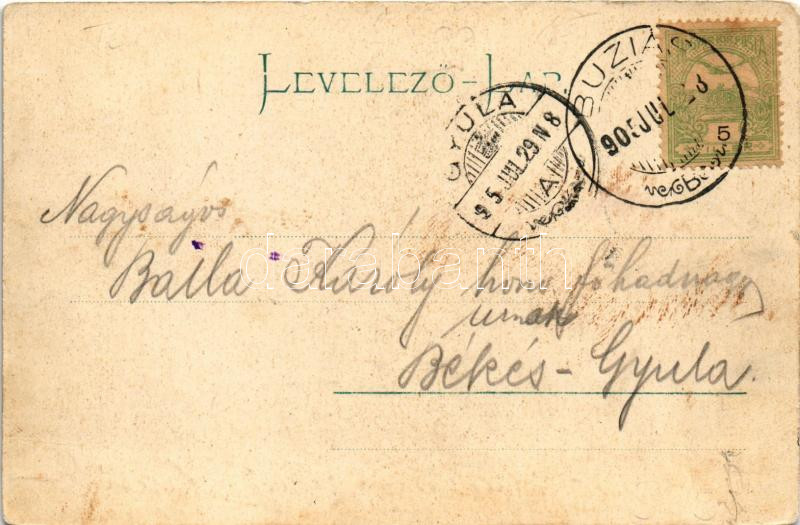 LEVELEZŐ-LAP.
BUZIÁS
905 JUL 28
5
GYULA
905 JUL 29 N 8
A
Nagyságos
Balla Károly honv. főhadnagy
urnak
Békés-Gyula.
darabanth